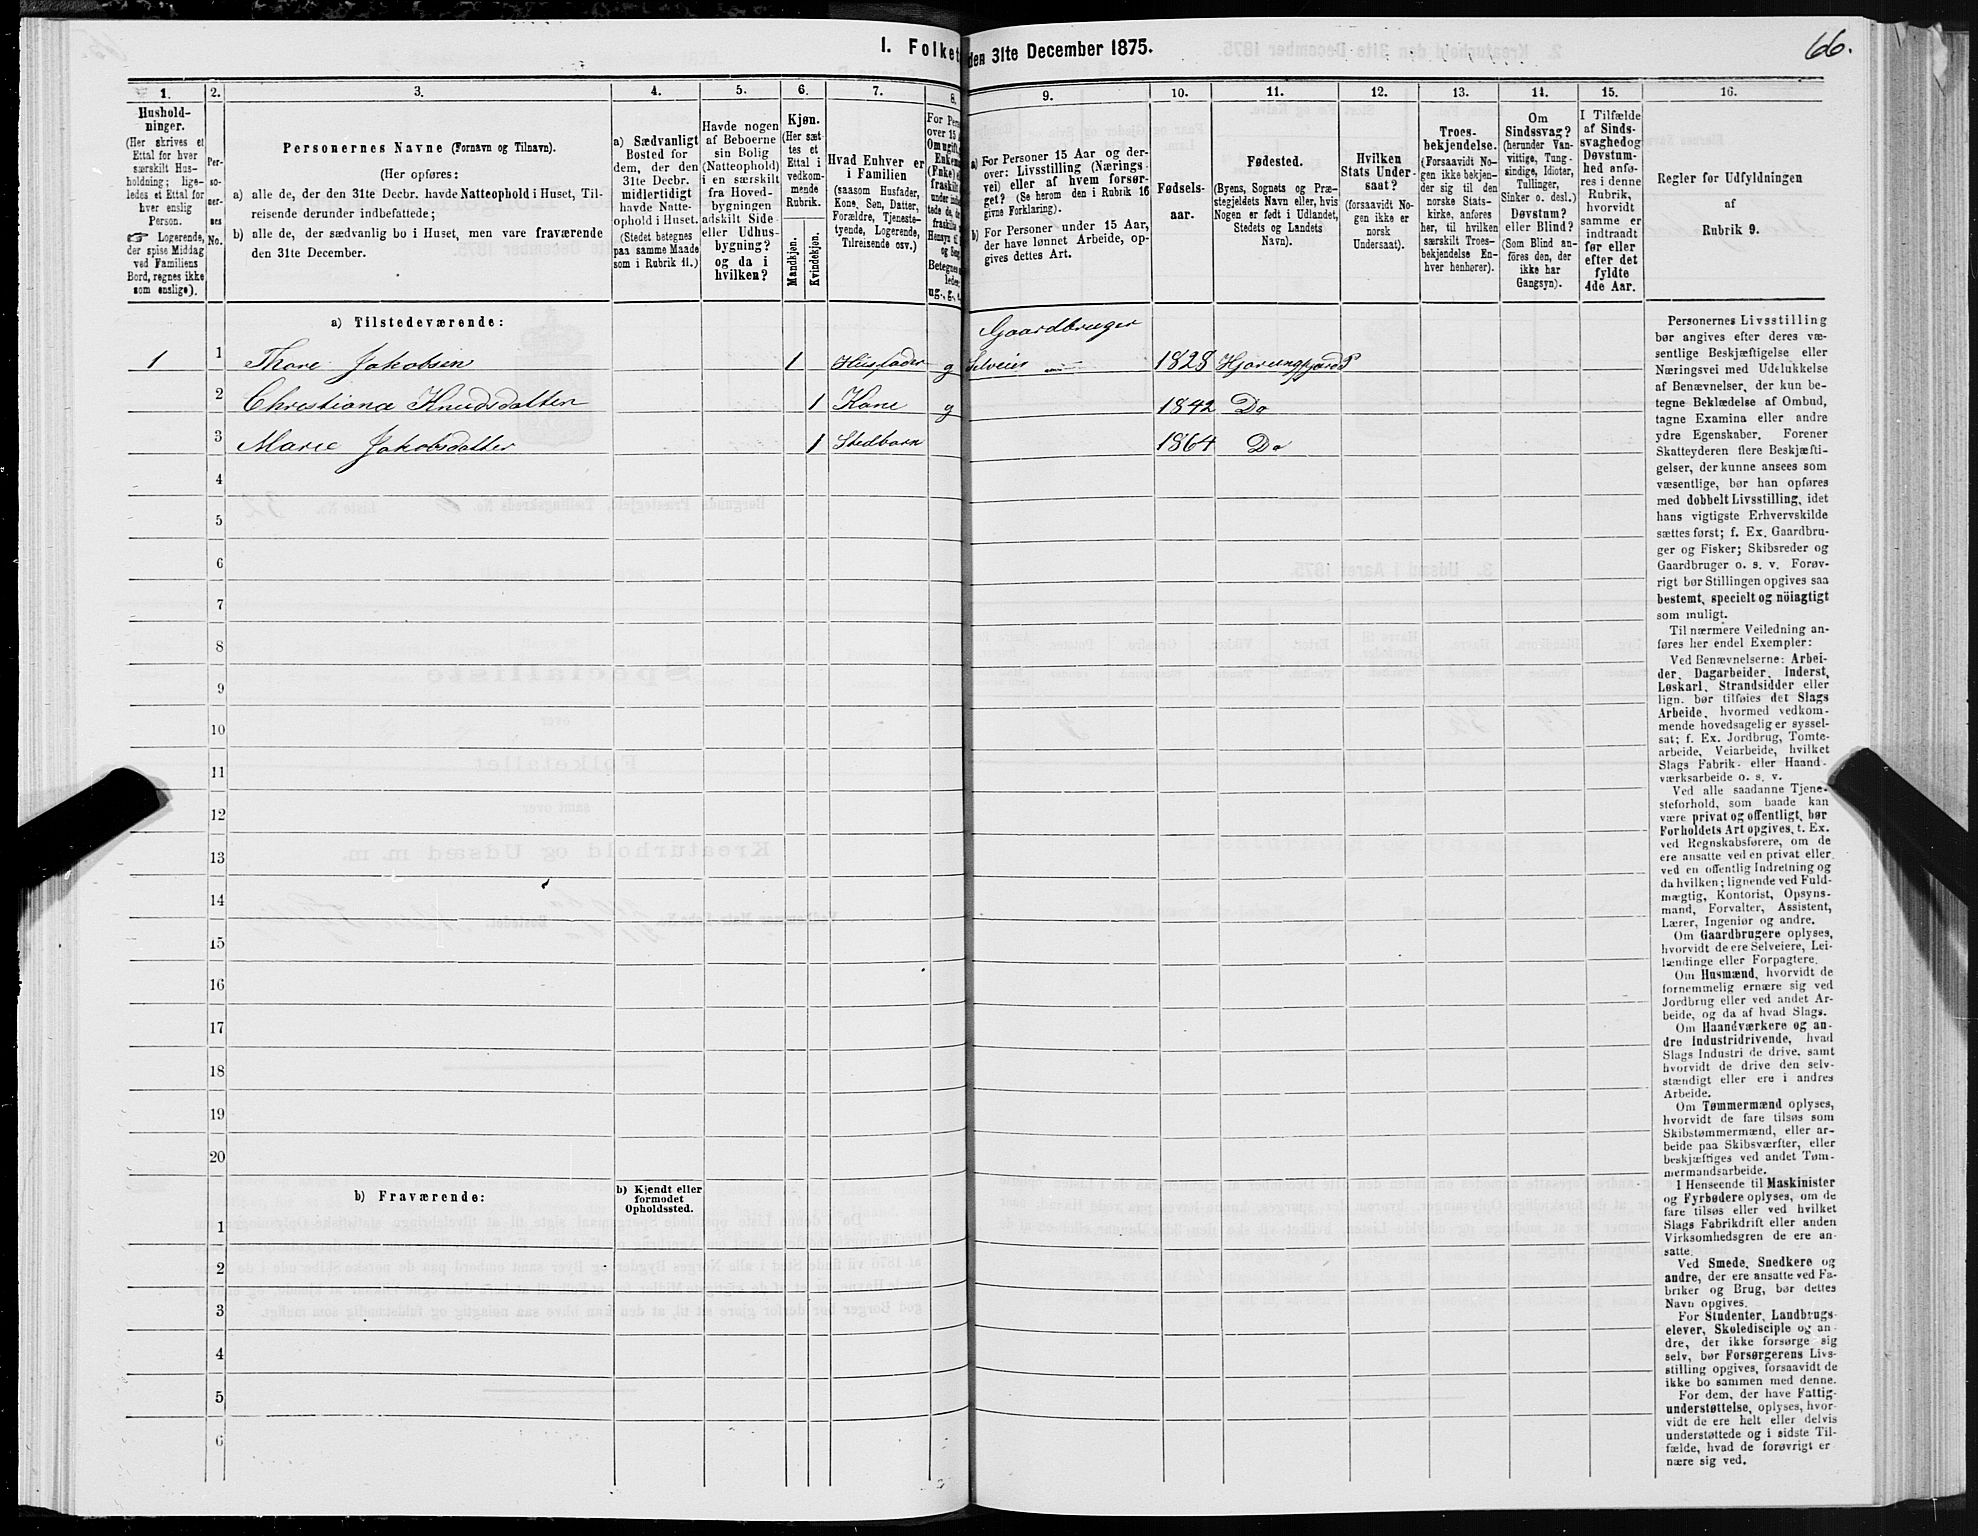 I. Folket
den 31te December 1875.
66.
1.
2.
3.
4.
5.
6.
7.
8.
9.
10.
11.
12.
13.
14.
15.
16.
Hushold-
ninger.
(Her skrives et
Ettal for hver
særskilt Hus-
holdning; lige-
ledes et Ettal for
hver enslig
Person.
☞ Logerende,
der spise Middag
ved Familiens
Bord, regnes ikke
som enslige).
Per-
so-
ner-
nes
No.
Personernes Navne (Fornavn og Tilnavn).
(Her opføres:
a) alle de, der den 31te Decbr. havde Natteophold i Huset, Til-
reisende derunder indbefattede;
b) alle de, der sædvanlig bo i Huset, men vare fraværende
den 31te December.
a) Sædvanligt
Bosted for
dem, der den
31te Decbr.
midlertidigt
havde Natte-
ophold i Huset.
(Stedet betegnes
paa samme Maade
som i Rubrik 11.)
Havde nogen
af Beboerne
sin Bolig
(Natteophold)
i en særskilt
fra Hoved-
bygningen
adskilt Side-
eller Udhus-
bygning?
og da i
hvilken?
Kjøn.
(Her sæt-
tes et
Ettal i
vedkom-
mende
Rubrik.
Mandkjøn.
Kvindekjøn.
Hvad Enhver er
i Familien
(saasom Husfader,
Kone, Søn, Datter,
Forældre, Tjeneste-
tyende, Logerende,
Tilreisende osv.)
For Pers
over 15 A
Om ugift,
Enkem
(Enke) e
fraskilt
Hensyn ti
og Seng
Betegnes
ug., g., e
a) For Personer 15 Aar og der-
over: Livsstilling (Nærings-
vei) eller af hvem forsør-
get? (Se herom den i Rubrik 16
givne Forklaring).
b) For Personer under 15 Aar,
der have lønnet Arbeide, op-
gives dettes Art.
Fødsels-
aar.
Fødested.
(Byens, Sognets og Præ-
stegjeldets Navn eller, hvis
Nogen er født i Udlandet,
Stedets og Landets
Navn).
Hvilken
Stats Under-
saat?
(forsaavidt No-
gen ikke er
norsk
Undersaat).
Troes-
bekjendelse.
(Forsaavidt No-
gen ikke bekjen-
der sig til den
norske Stats-
kirke, anføres
her, til hvilken
særskilt Troes-
bekjendelse En-
hver henhører).
Om
Sindssvag?
(herunder Van-
vittige, Tung-
sindige, Idioter,
Tullinger,
Sinker o. desl.)
Døvstum?
eller Blind?
(Som Blind an-
føres den, der
ikke har
Gangsyn).
I Tilfælde
af Sinds-
svaghed og
Døvstum-
hed anfø-
res i denne
Rubrik,
hvorvidt
samme er
indtraadt
før eller
efter det
fyldte
4de Aar.
Regler for Udfyldningen
af
Rubrik 9.
a) Tilstedeværende:
Gaardbruger
1 1 Thore Jakobsen 1 Husfader g Selveier 1828 Hjørungfjord P
2 Christiana Knudsdatter 1 Kone g 1842 Do
3 Marie Jakobsdatter 1 Stedbarn 1864 Do
4
5
6
7
8
9
10
11
12
13
14
15
16
17
18
19
20
b) Fraværende:
b) Kjendt eller
formodet
Opholdssted.
1
2
3
4
5
6
Personernes Livsstilling
bør angives efter deres væ-
sentlige Beskjæftigelse eller
Næringsvei med Udelukkelse
af Benævnelser, der kun be-
tegne Beklædelse af Ombud,
tagne Examina eller andre
ydre Egenskaber. Forener
Skatteyderen flere Beskjæfti-
gelser, der kunne ansees som
væsentlige, bør han opføres
med dobbelt Livsstilling, idet
hans vigtigste Erhvervskilde
sættes først; f. Ex. Gaardbru-
ger og Fisker; Skibsreder og
Gaardbruger o. s. v. Forøv-
rigt bør Stillingen opgives saa
bestemt, specielt og nöiagtigt
som muligt.
Til nærmere Veiledning an-
føres her endel Exempler:
Ved Benævnelserne: Arbei-
der, Dagarbeider, Inderst,
Løskarl, Strandsidder eller
lign. bør tilføies det Slags
Arbeide, hvormed vedkom-
mende hovedsagelig er syssel-
sat; f. Ex. Jordbrug, Tomte-
arbeide, Veiarbeide, hvilket
Slags Fabrik- eller Haand-
værksarbeide o. s. v.
Ved alle saadanne Tjene-
steforhold, som baade kan
være privat og offentligt, bør
Forholdets Art opgives, t. Ex.
ved Regnskabsførere, om de
ere ansatte ved en privat eller
ved en offentlig Indretning og
da hvilken; lignende ved Fuld-
mægtig, Kontorist, Opsyns-
mand, Forvalter, Assistent,
Lærer, Ingeniør og andre.
Om Gaardbrugere oplyses,
hvorvidt de ere Selveiere, Lei-
lændinge eller Forpagtere.
Om Husmænd, hvorvidt de
fornemmelig ernære sig ved
Jordbrug eller ved andet Ar-
beide, og da af hvad Slags.
Om Haandværkere og an-
dre Industridrivende, hvad
Slags Industri de drive, samt
hvorvidt de drive den selv-
stændigt eller ere i andres
Arbeide.
Om Tømmermænd oplyses,
hvorvidt de fare tilsøs som
Skibstømmermænd, eller ar-
beide paa Skibsværfter, eller
beskjæftiges ved andet Tøm-
mermandsarbeide.
I Henseende til Maskinister
og Fyrbødere oplyses, om de
fare tilsøs eller ved hvilket
Slags Fabrikdrift eller anden
Virksomhedsgren de ere an-
satte.
Ved Smede, Snedkere og
andre, der ere ansatte ved Fa-
briker og Brug, bør dettes
Navn opgives.
For Studenter, Landbrugs-
elever, Skoledisciple og an-
dre, der ikke forsørge sig
selv, bør Forsørgerens Livs-
stilling opgives, forsaavidt de
ikke bo sammen med denne.
For dem, der have Fattig-
understøttelse, oplyses, hvor-
vidt de ere helt eller delvis
understøttede og i sidste Til-
fælde, hvad de forøvrigt er
nære sig ved.